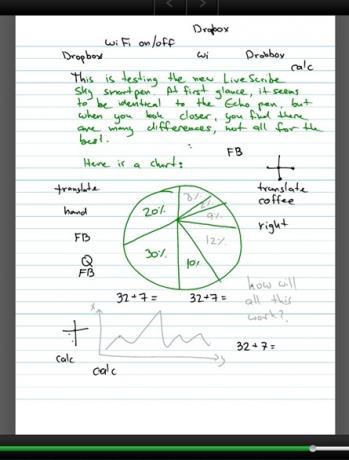 Drobox
WiFi on/off
Dropbox Wi Drobbox
calc
This is testing the new LiveScribe
Sky smartpen. At first glance, it seems
to be identical to the Echo pen, but
when you look closer, you find there
are many differences, not all for the
best.
FB
Here is a chart:
translate
translate
coffee
hand
right
FB
Q
FB
20%
8%
9%
12%
10%
30%
how will
all this
work?
32+7= 32+7=
32+7=
x
y
calc
calc